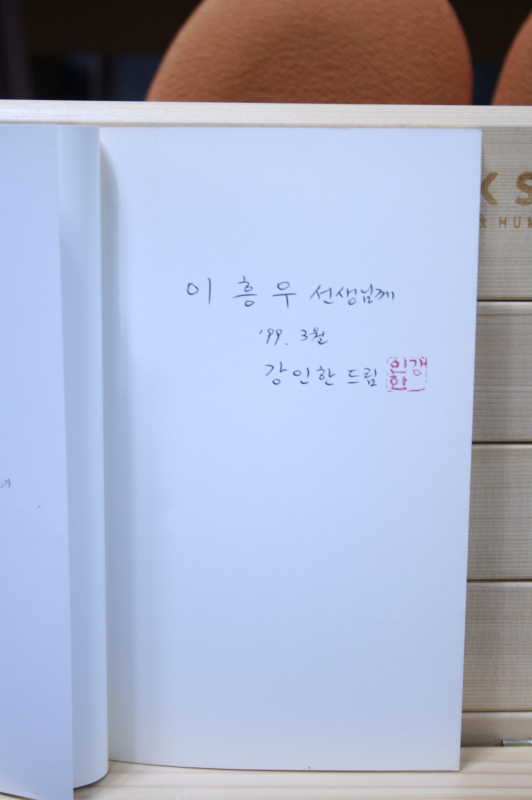 이 흥 우 선생님께
'99. 3월
강인한 드림
강인한
K S
& HUM